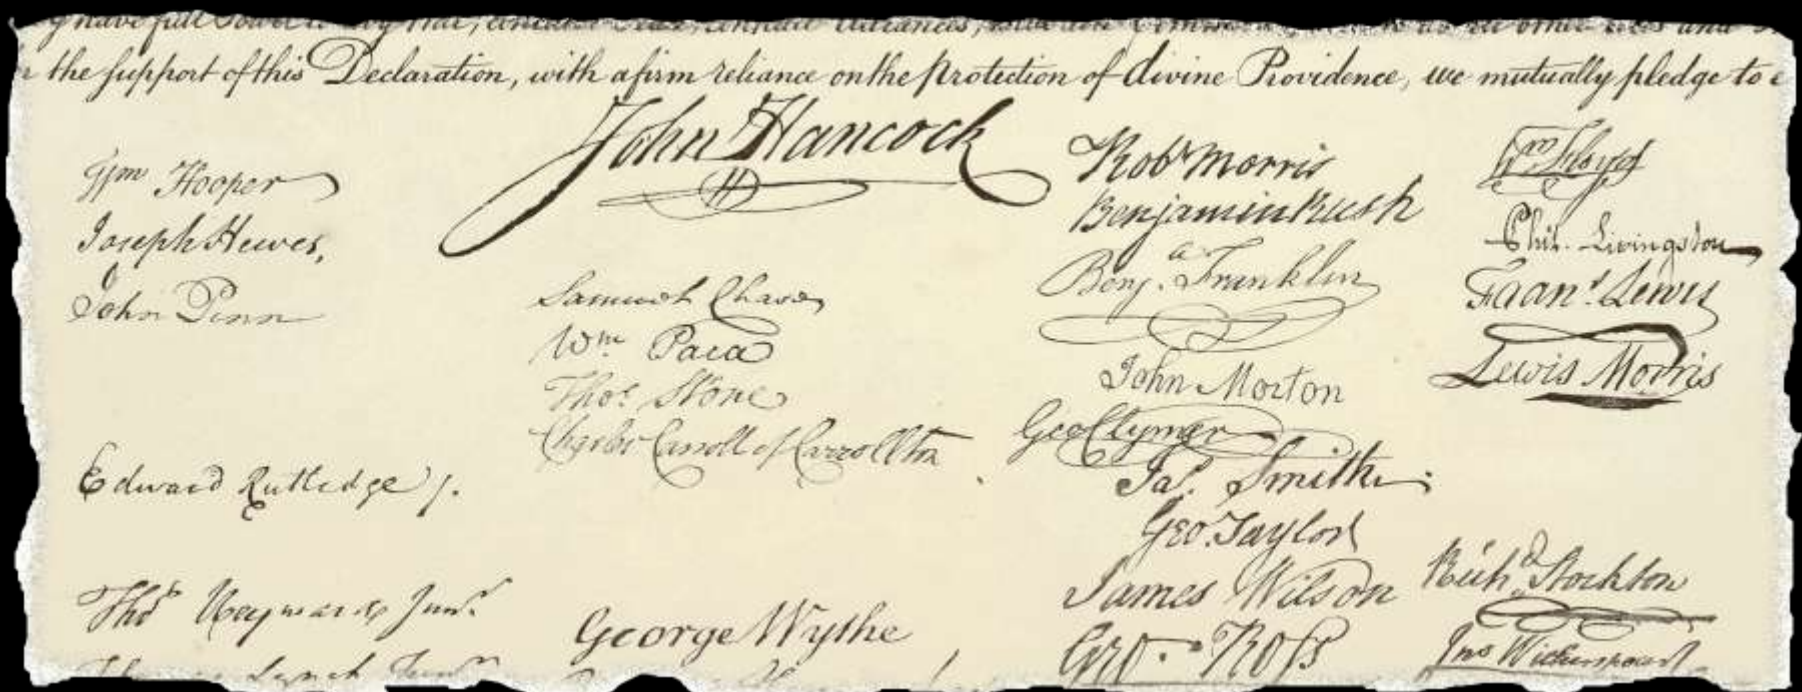 the support of this Declaration, with a firm reliance on the Protection of divine Providence, we mutually pledge to e
John Hancock
Wm Hooper
Joseph Hewes,
John Penn
Edward Rutledge /.
Thos Heyward Junr.
Lynch Junr
Samuel Chase
Wm. Paca
Thos. Stone
Charles Carroll of Carrollton
George Wythe
Robt Morris
Benjamin Rush
Benja. Franklin
John Morton
Geo Clymer
Jas. Smith
Geo. Taylor
James Wilson
Geo. Ross
Wm Floyd
Phil. Livingston
Frans. Lewis
Lewis Morris
Richd. Stockton
Jno Witherspoon